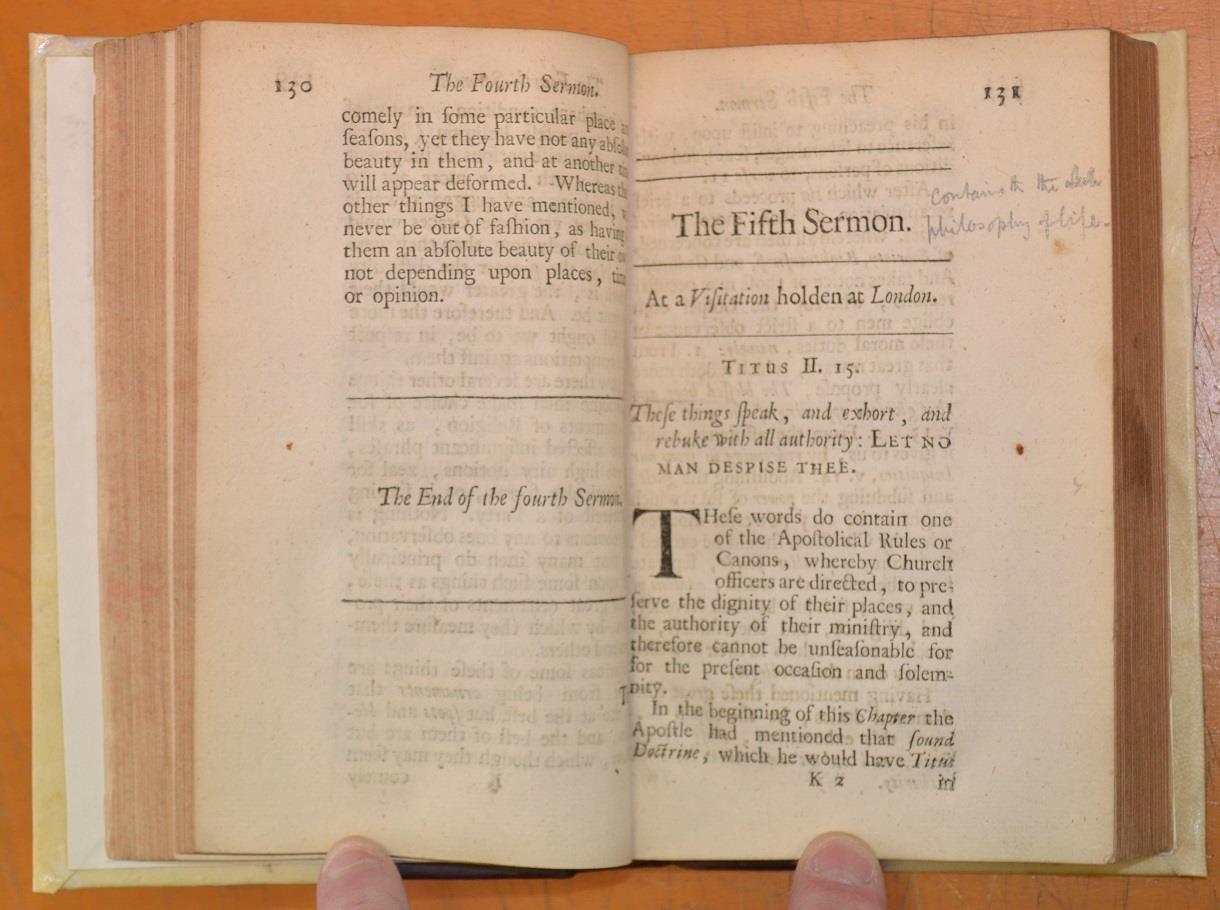 130
The Fourth Sermon.
comely in ſome particular place
ſeaſons, yet they have not any abſol
beauty in them, and at another
will appear deformed. Whereas
other things I have mentioned,
never be out of faſhion, as having
them an abſolute beauty of their
not depending upon places,
or opinion.
The End of the fourth Sermon.
131
The Fifth Sermon.
contains the
philosophy of life.
At a Viſitation holden at London.
TITUS II. 15.
Theſe things ſpeak, and exhort, and
rebuke with all authority: LET NO
MAN DESPISE THEE.
THeſe words do contain one
of the Apoſtolical Rules or
Canons, whereby Church
officers are directed, to pre-
ſerve the dignity of their places, and
the authority of their miniſtry, and
therefore cannot be unſeaſonable for
for the preſent occaſion and ſolem-
nity.
In the beginning of this Chapter the
Apoſtle had mentioned that ſound
Doctrine, which he would have Titus
K 2
in